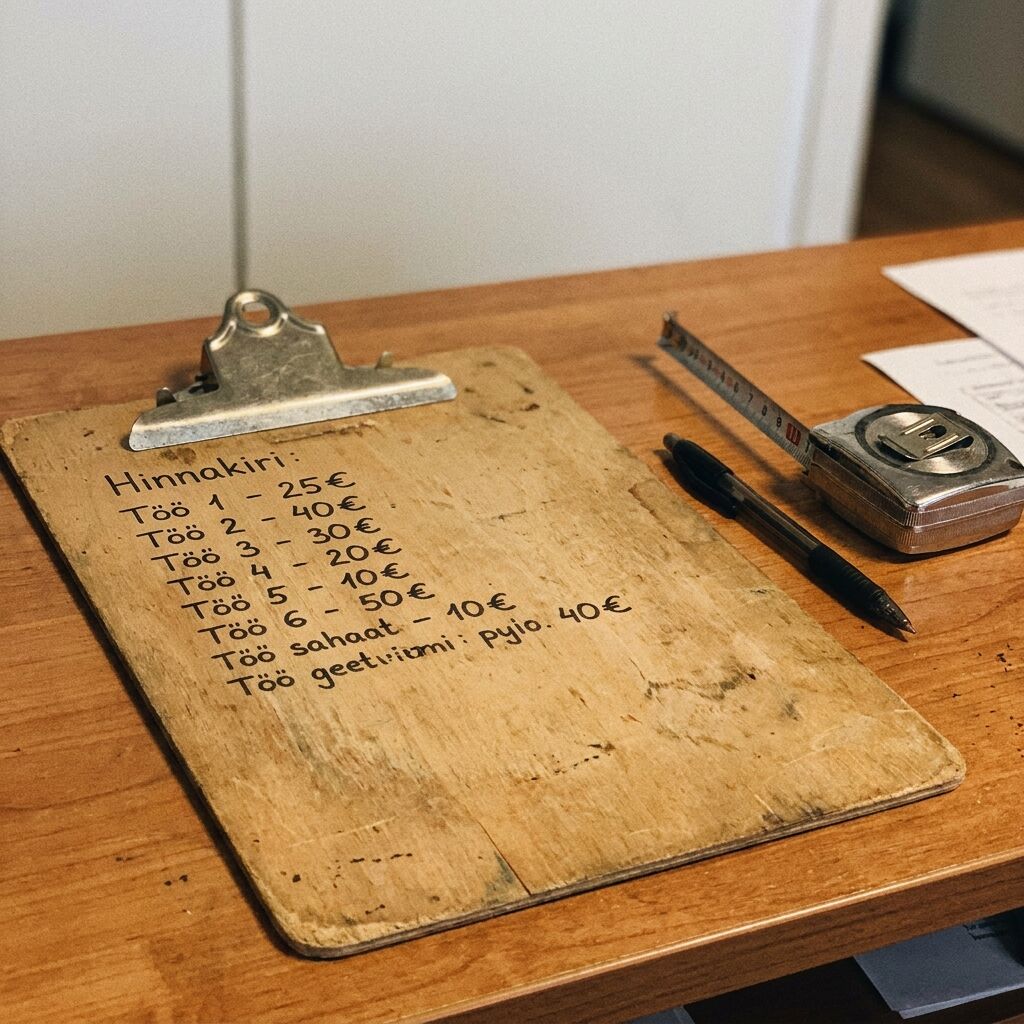 Hinnakiri:
Töö 1 - 25€
Töö 2 - 40€
Töö 3 - 30€
Töö 4 - 20€
Töö 5 - 10€
Töö 6 - 50€
Töö sahaat - 10€
Töö pyio. 40€